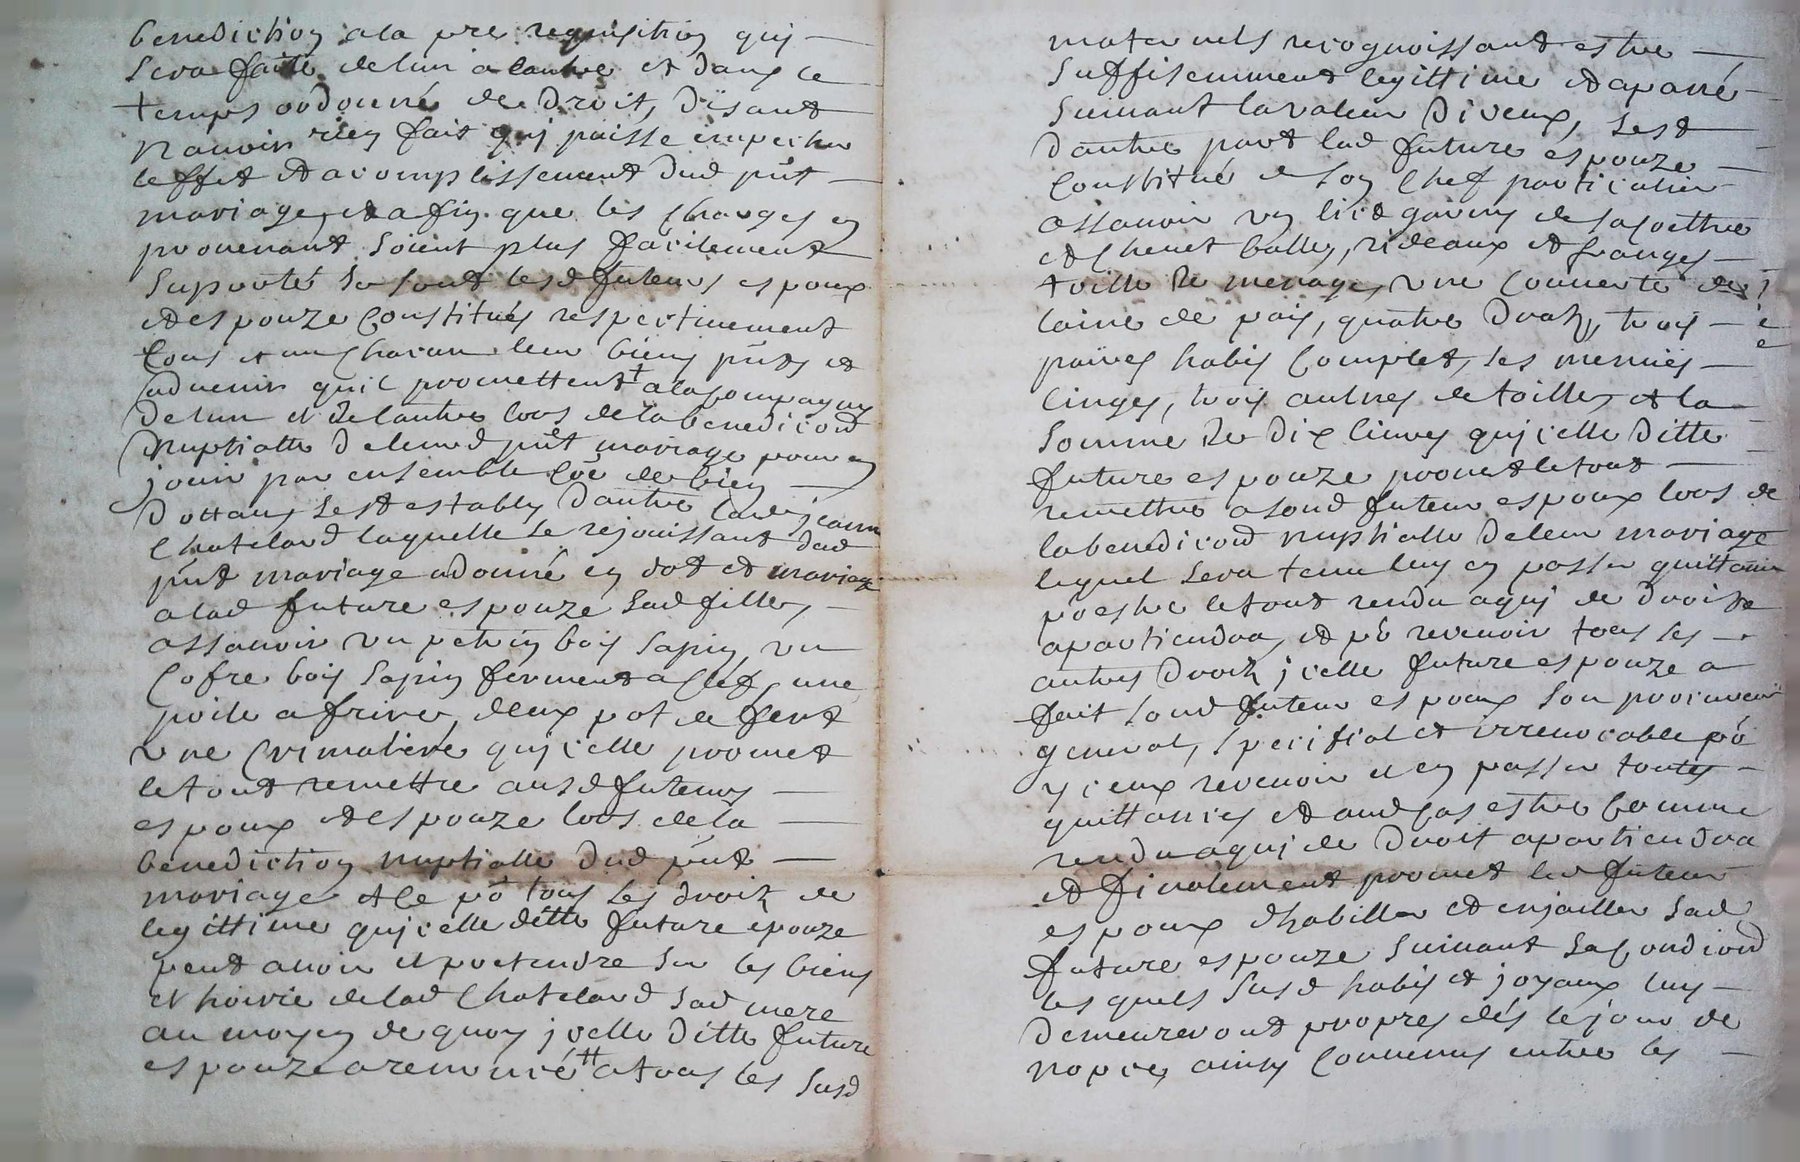 benediction a la pre requisition quy
sera faitte de lun a lautre et dans le
temps ordonné de droit, disant
navoir rien fait quy puisse empecher
leffet et acomplissement dud pnt
mariage, et afin que les charges en
provenant soient plus facilement
suporté se sont lesd futeurs espoux
et espouze constitués respectivement
tous et un chacun leur biens pnts et
advenir quil promettent † a la compagny
de lun et de lautre lors de la benediction
nuptialle de leurd pnt mariage pour en
jouir par ensemble de bien
dottaux sest establys dautre lad jeanne
Chatelard laquelle se rejouissant dud
pnt mariage a donné en dot et mariage
a lad future espouze sad fille,
assavoir un petrin bois sapin, un
cofre bois sapin ferment a clef, une
poile a frire, deux pot de fert
une crimaliere quycelle promet
le tout remettre ausd futeurs
espoux et espouze lors de la
benediction nuptialle dud pnt
mariage et ce po tous les droitz de
legittime quycelle ditte future epouze
peut avoir et pretendre sur les biens
et hoirie de lad Chatelard sad mere
au moyen de quoy jcelle ditte future
espouze a renoncé †† a tous les susd
maternels recognoissant estre
suffisemment legittimé et aparié
suivant la valeur diceux, sest
dautre part lad future espouze
constitué de son chef particulier
assavoir un lict garny de sa coettre
et chevet balle, rideaux et franges
toille de menage, une couverte de
laine de pais, quatre draz, trois
paires habis complet, ses menües
linges, trois aulnes de toille, et la
somme de dix livres quycelle ditte
future espouze promet le tout
remettre a soud futeur espoux lors de
la benediction nuptialle de leur mariage
lequel sera tenu luy en passer quittance
po estre le tout rendu a quy de droit
apartiendra, et po recevoir tous les
autres droitz jcelle future espouze a
fait soud futeur espoux son procureur
general, specifial et irrevocable po
yceux recevoir et en passer toutes
quittances et aud cas estre comme
rendu a quy de droit apartiendra
et finalement promet led futeur
espoux dhabiller et enjailler sad
future espouze suivant sa condiond
les quels susd habis et joyaux luy
demeureront propres dés le jour de
nopce, ainsy convenus entre les